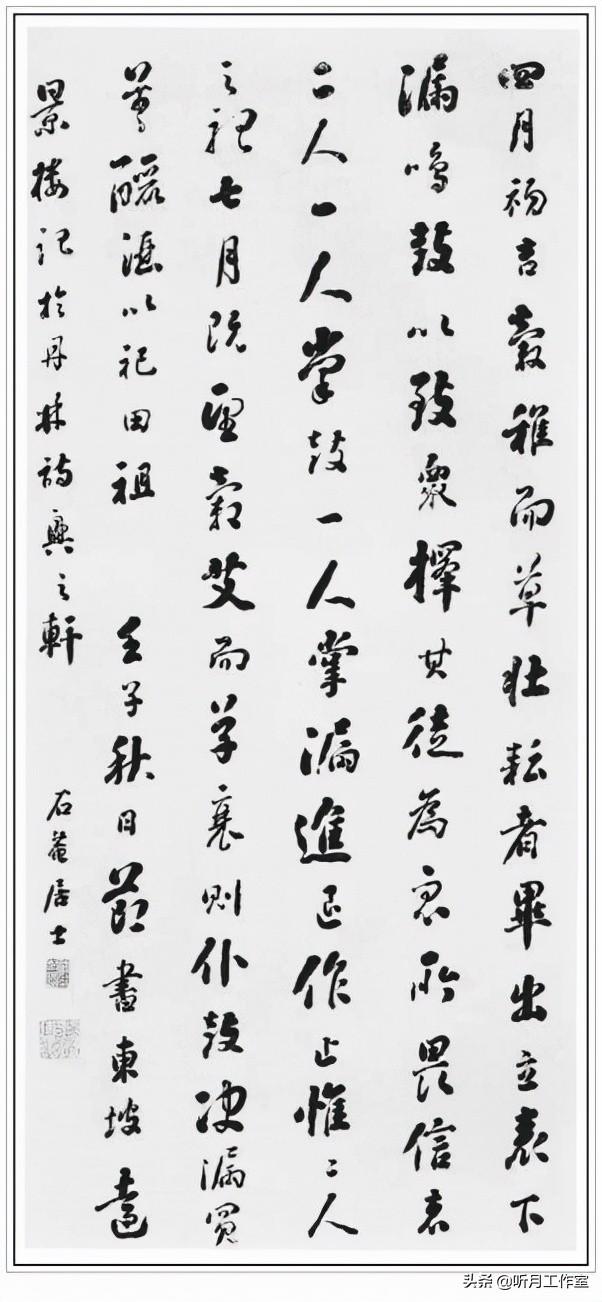 四月初吉穀稚而草壯耘者畢出立表下
漏鳴鼓以致衆擇其徒為衆所畏信者
二人一人掌鼓一人掌漏進退作止惟二人
之聽七月既望穀艾而草衰則仆鼓决漏買
羊釃酒以祀田祖 壬子秋日節書東坡遠
景樓記於丹林詩興之軒 石菴居士
头条 @听月工作室